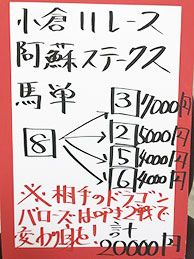 小倉11レース
阿蘇ステークス
馬単
8
3 7000円
2 5000円
5 4000円
6 4000円
※相手のドラゴン
バローズは叩き2戦で
変わり身も!
計
20000円